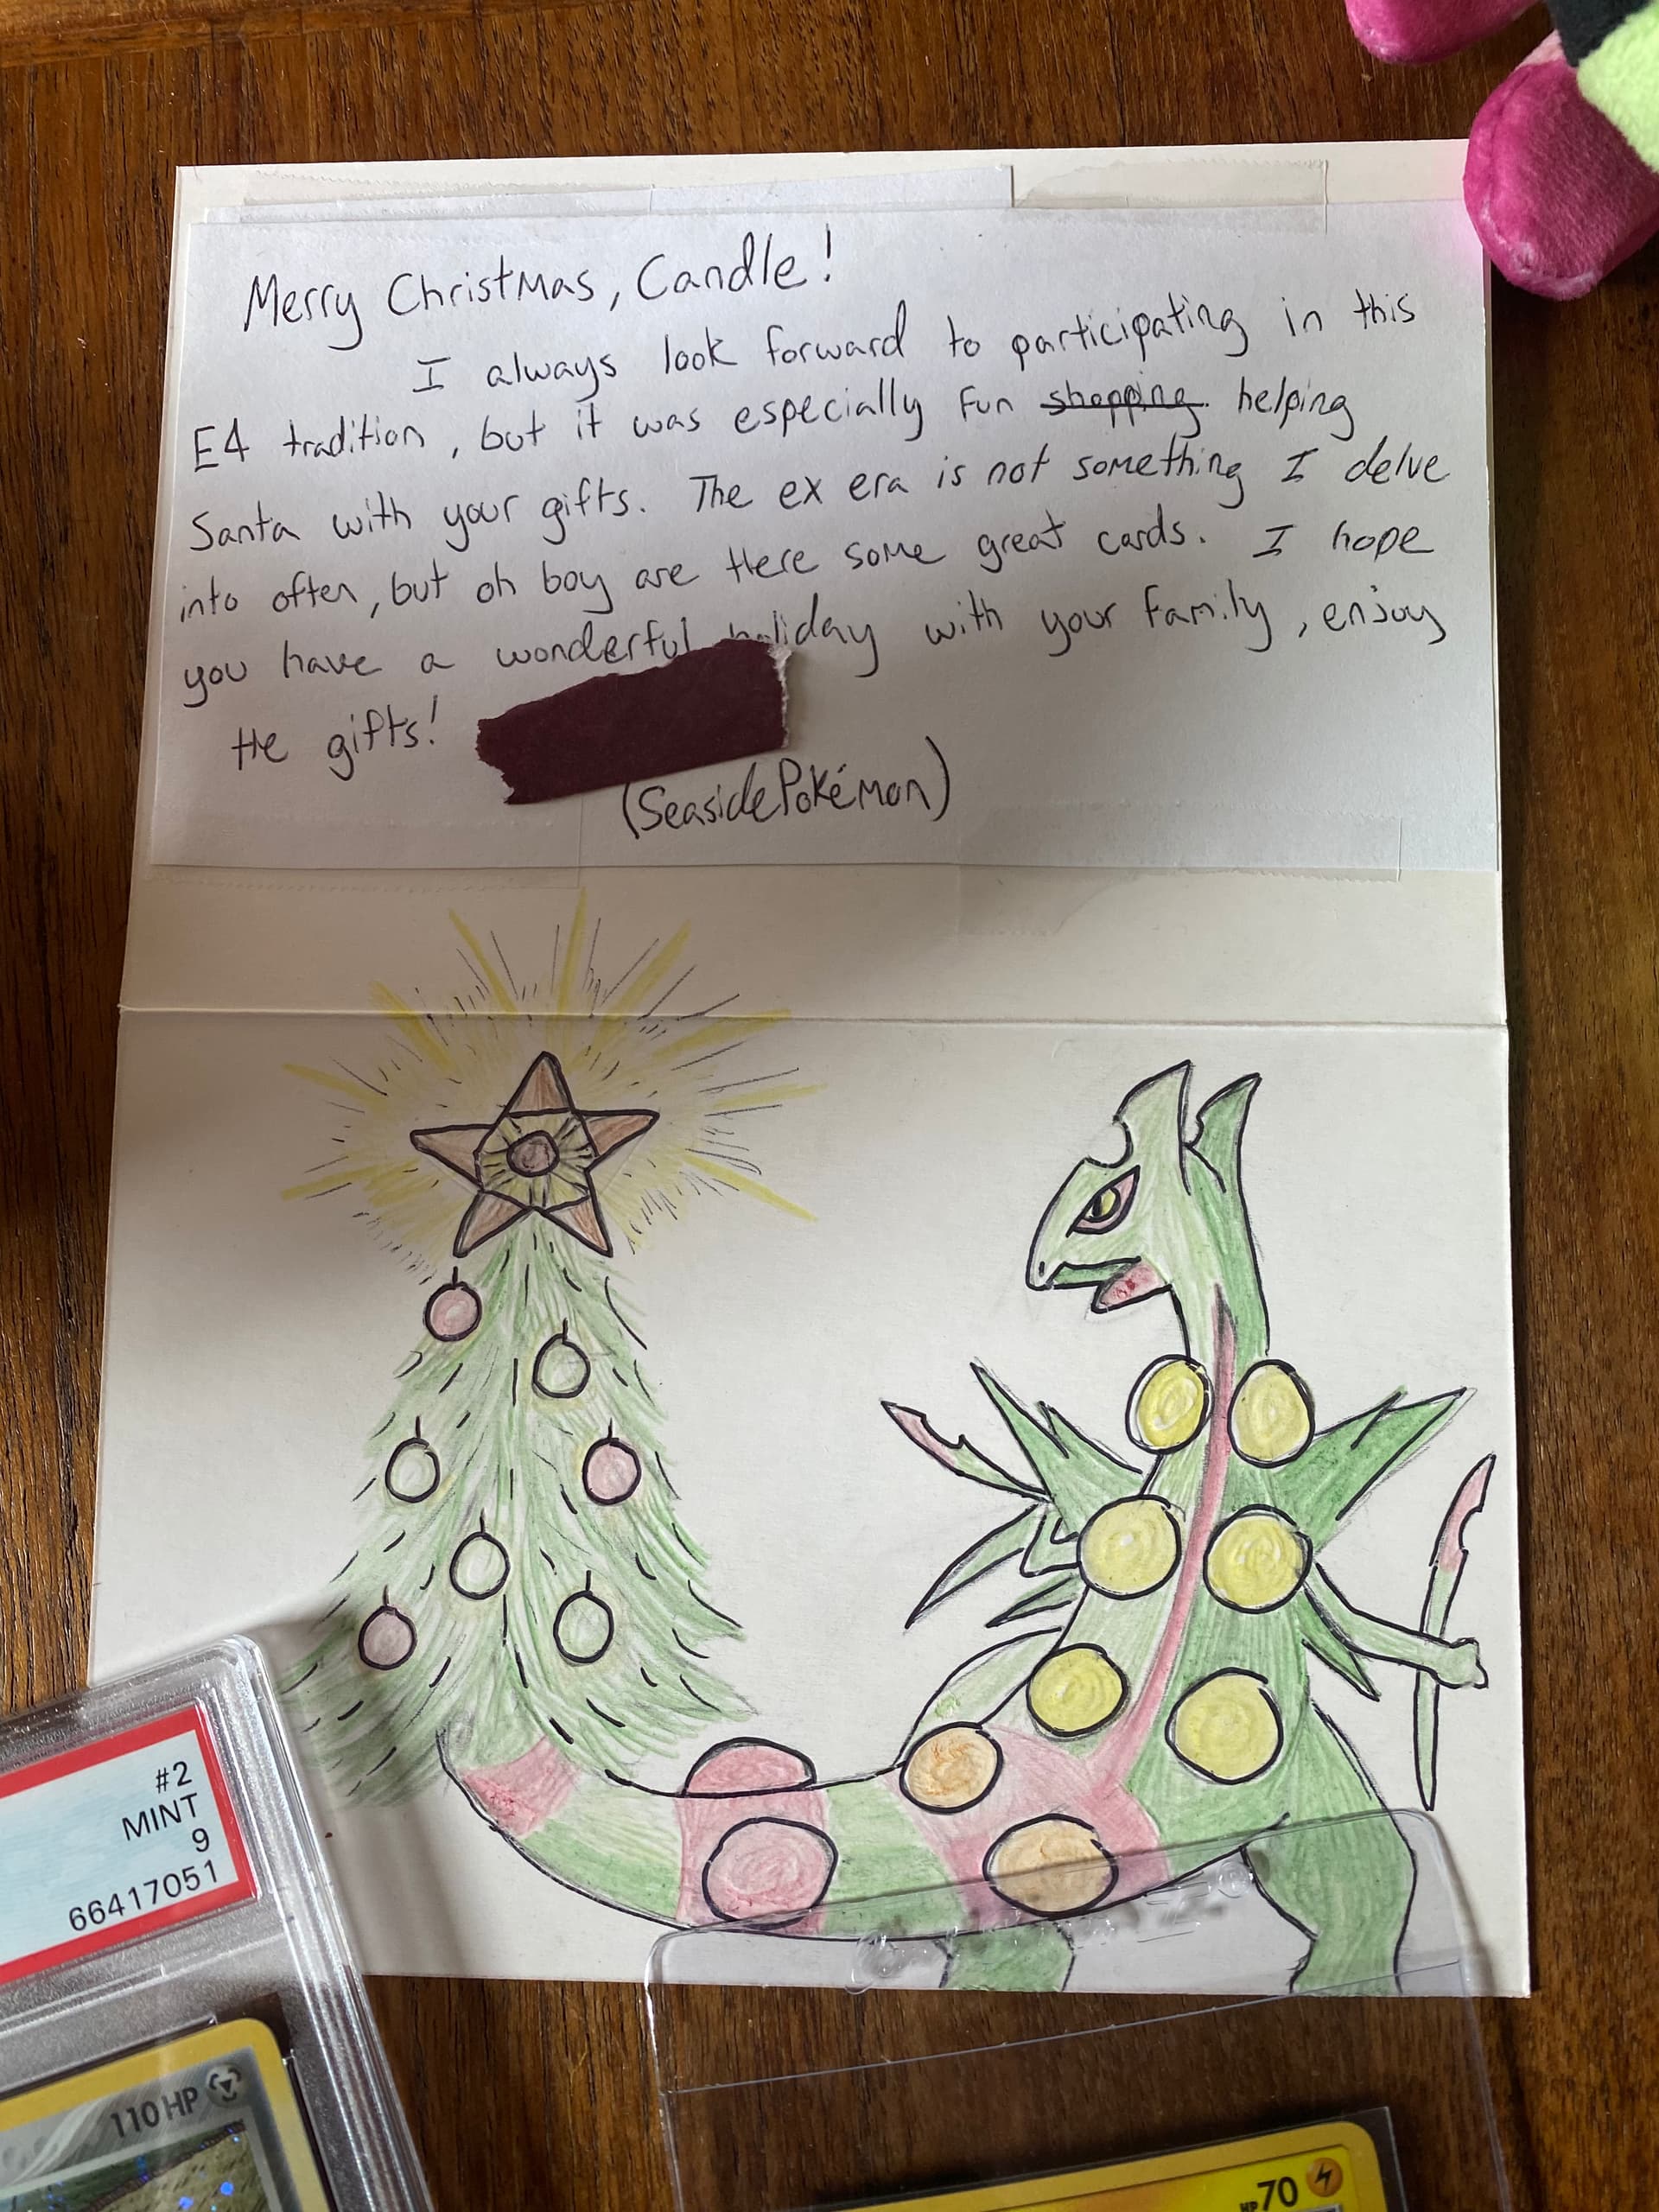 Merry Christmas, Candle!
I always look forward to participating in this
E4 tradition, but it was especially fun shopping helping
Santa with your gifts. The ex era is not something I delve
into often, but oh boy are there some great cards. I hope
you have a wonderful holiday with your family, enjoy
the gifts!
(SeasidePokémon)
#2
MINT
9
66417051
110 HP
HP 70